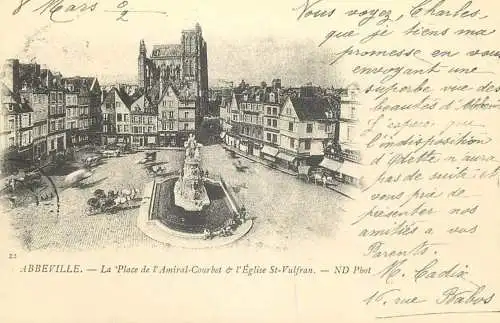 8 Mars 02
Vous voyez, Charles,
que je tiens ma
promesse en vous
envoyant une
superbe vue des
beautés d'
J'espère que
l'indisposition
d'Odette n'aura
pas de suite et
vous prie de
présenter nos
amitiés a vos
Parents.
M. Cadix
23
ABBEVILLE. — La Place de l'Amiral-Courbet & l'Église St-Vulfran. — ND Phot
15, rue